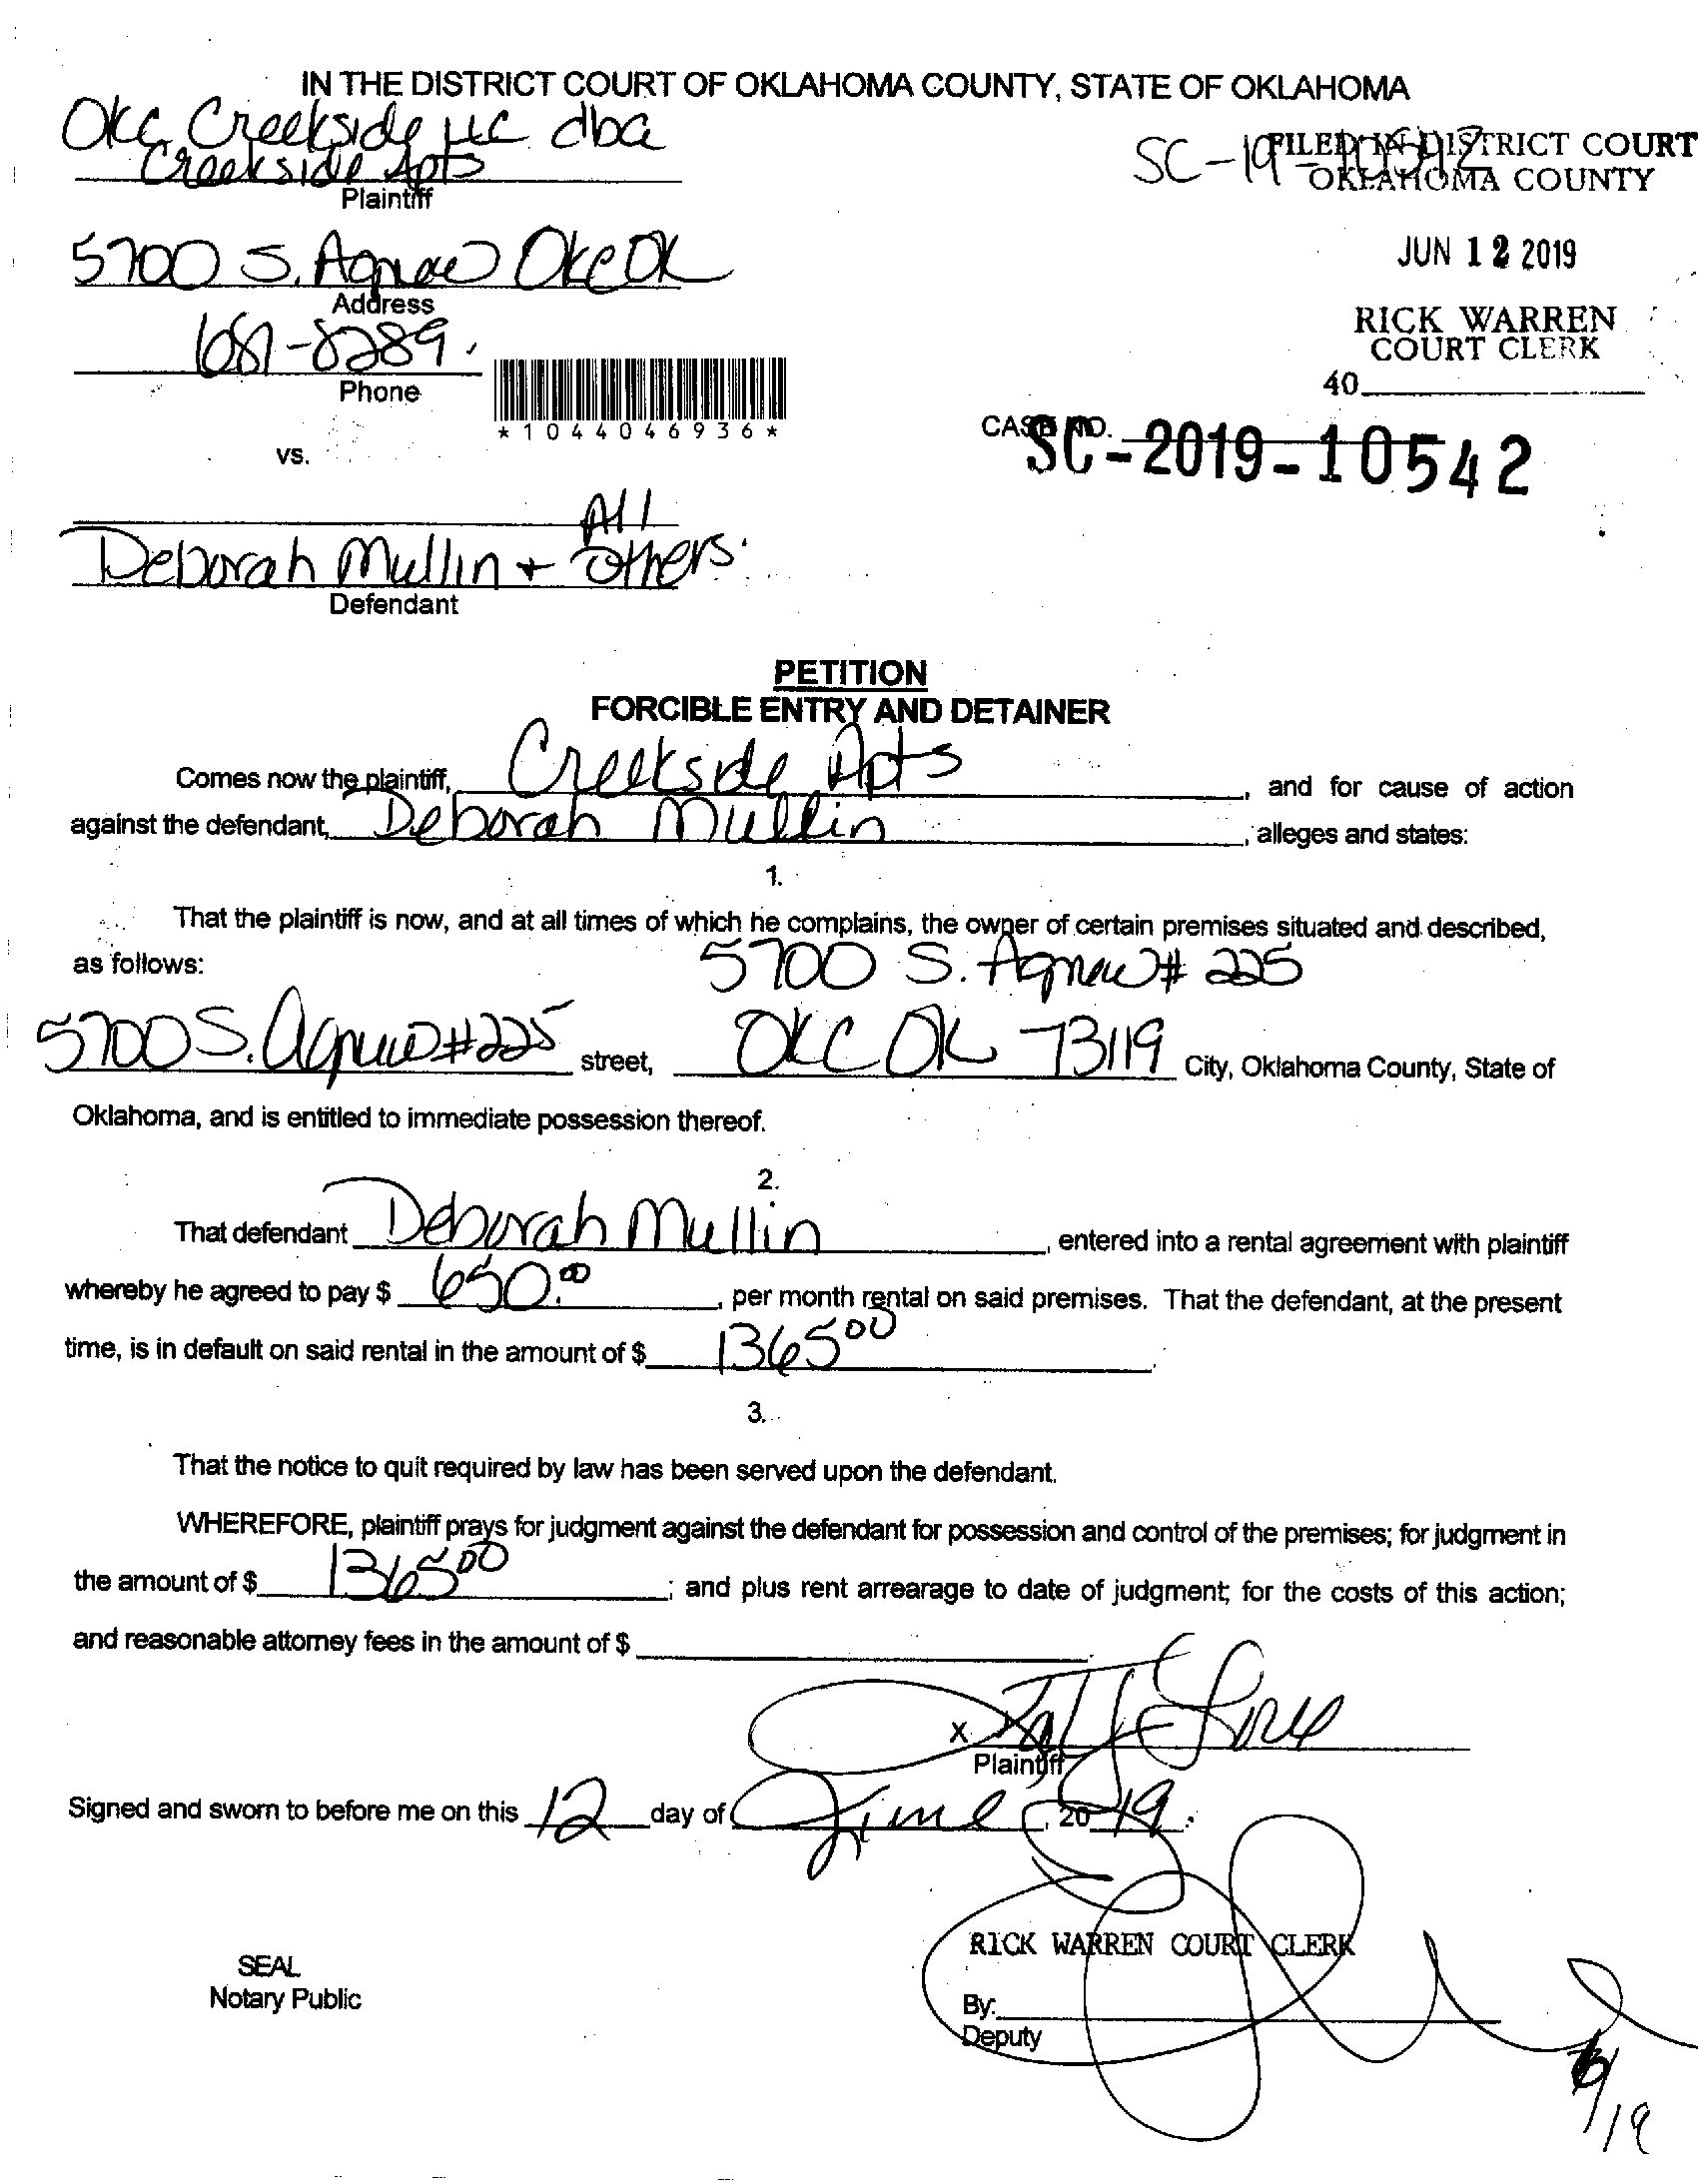 IN THE DISTRICT COURT OF OKLAHOMA COUNTY, STATE OF OKLAHOMA
Okc Creekside LLC dba
Creekside Apts
Plaintiff
SC-19-10542
FILED IN DISTRICT COURT
OKLAHOMA COUNTY
5700 S. Agnew Okc OK
Address
JUN 12 2019
681-8289.
Phone
RICK WARREN
COURT CLERK
40
*1044046936*
CASE NO.
SC-2019-10542
vs.
All
Deborah Mullin + others.
Defendant
PETITION
FORCIBLE ENTRY AND DETAINER
Comes now the plaintiff, Creekside Apts, and for cause of action
against the defendant, Deborah Mullin, alleges and states:
1.
That the plaintiff is now, and at all times of which he complains, the owner of certain premises situated and described,
as follows: 5700 S. Agnew # 225
5700 S. Agnew #225 street, OKC OK 73119 City, Oklahoma County, State of
Oklahoma, and is entitled to immediate possession thereof.
2.
That defendant Deborah Mullin, entered into a rental agreement with plaintiff
whereby he agreed to pay $ 650.00, per month rental on said premises. That the defendant, at the present
time, is in default on said rental in the amount of $ 1365 00.
3.
That the notice to quit required by law has been served upon the defendant.
WHEREFORE, plaintiff prays for judgment against the defendant for possession and control of the premises; for judgment in
the amount of $ 1365 00; and plus rent arrearage to date of judgment; for the costs of this action;
and reasonable attorney fees in the amount of $
X
Plaintiff
Signed and sworn to before me on this 12 day of June, 2019.
RICK WARREN COURT CLERK
SEAL
Notary Public
By:
Deputy
/19